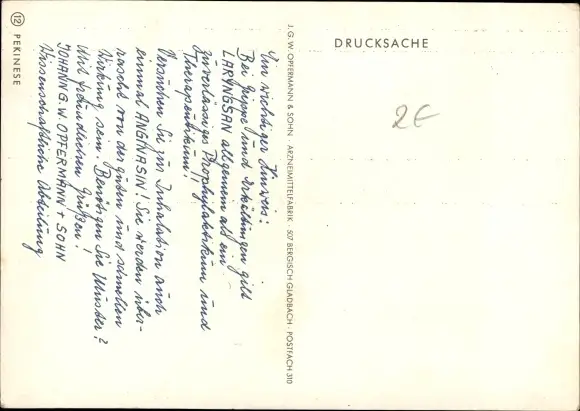 Ein wichtiger Hinweis:
Bei Grippe und Erkältungen gilt
LARYNGSAN allgemein als ein
zuverlässiges Prophylaktikum und
Therapeutikum!!
Versuchen Sie zur Inhalation auch
einmal ANGINASIN! Sie werden über-
rascht von der guten und schnellen
Wirkung sein. Benötigen Sie Muster?
Mit freundlichen Grüßen!
JOHANN G. W. OPFERMANN + SOHN
Wissenschaftliche Abteilung
12 PEKINESE
J. G. W. OPFERMANN & SOHN · ARZNEIMITTELFABRIK · 507 BERGISCH GLADBACH · POSTFACH 310
DRUCKSACHE
2€